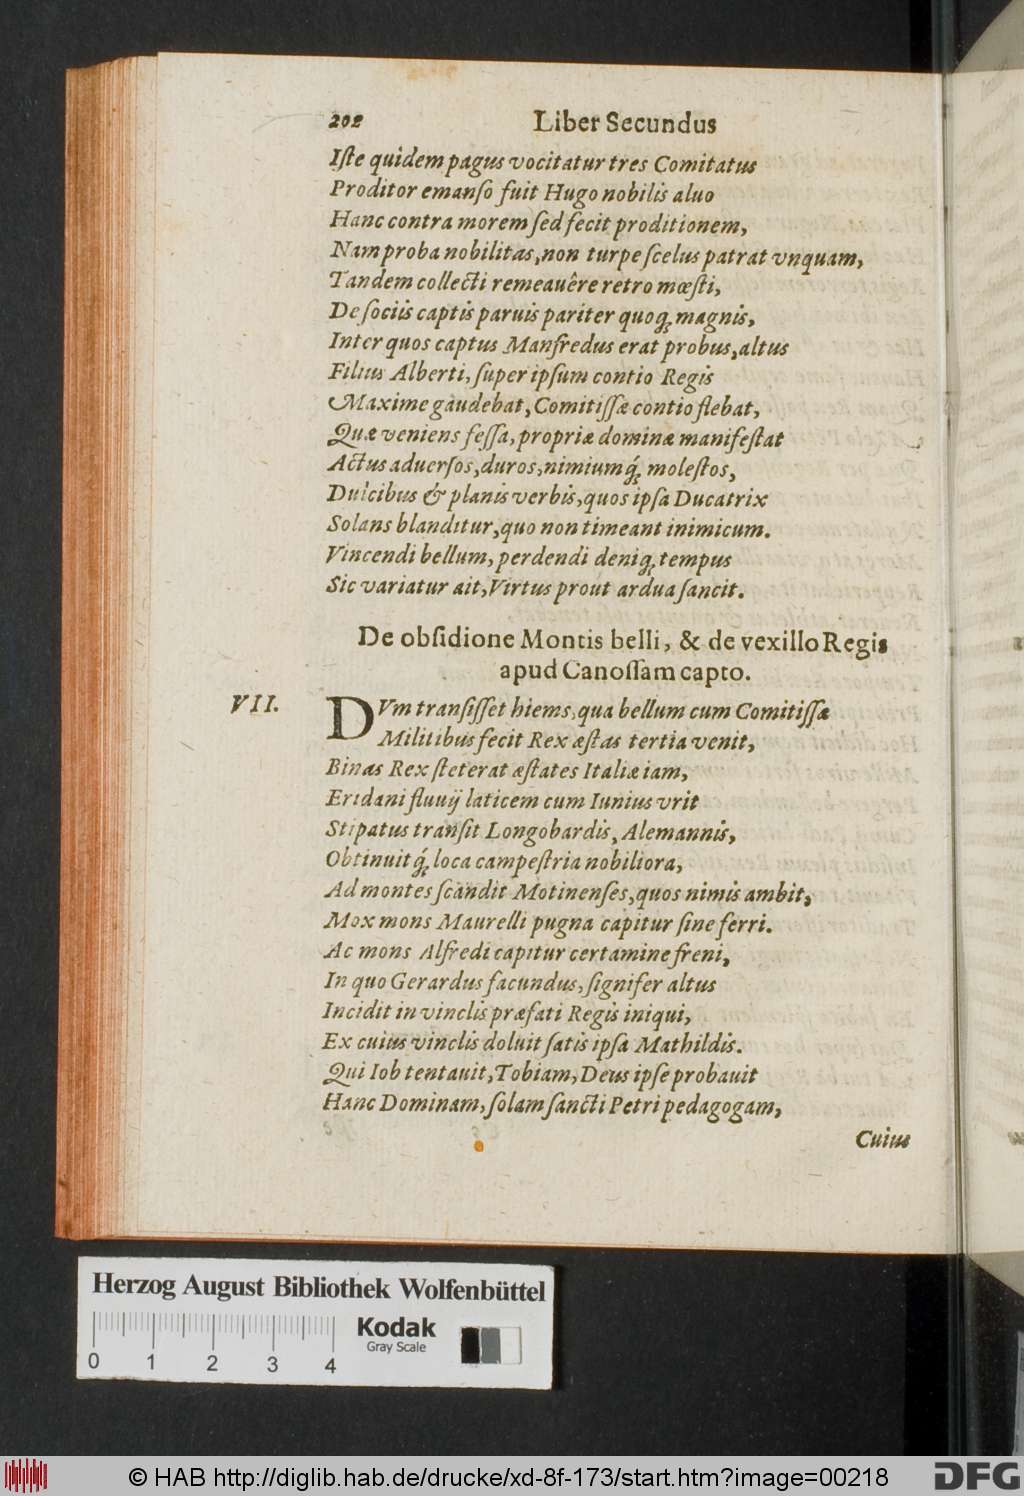 202 Liber Secundus
Iſte quidem pagus vocitatur tres Comitatus
Proditor emanſo fuit Hugo nobilis aluo
Hanc contra morem ſed fecit proditionem,
Nam proba nobilitas, non turpe ſcelus patrat vnquam,
Tandem collecti remeauêre retro mœſti,
De ſociis captis paruis pariter quoq; magnis,
Inter quos captus Manfredus erat probus, altus
Filius Alberti, ſuper ipſum contio Regis
Maxime gaudebat, Comitiſſæ contio flebat,
Quæ veniens feſſa, propriæ dominæ manifeſtat
Actus aduerſos, duros, nimiumq́; moleſtos,
Dulcibus & planis verbis, quos ipſa Ducatrix
Solans blanditur, quo non timeant inimicum.
Vincendi bellum, perdendi deniq; tempus
Sic variatur ait, Virtus prout ardua ſancit.
De obſidione Montis belli, & de vexillo Regis
apud Canoſſam capto.
VII. DVm tranſiſſet hiems, qua bellum cum Comitiſſæ
Militibus fecit Rex æſtas tertia venit,
Binas Rex ſteterat æſtates Italiæ iam,
Eridani fluuij laticem cum Iunius vrit
Stipatus tranſit Longobardis, Alemannis,
Obtinuitq́; loca campeſtria nobiliora,
Ad montes ſcandit Motinenſes, quos nimis ambit,
Mox mons Maurelli pugna capitur ſine ferri.
Ac mons Alfredi capitur certamine freni,
In quo Gerardus facundus, ſignifer altus
Incidit in vinclis præfati Regis iniqui,
Ex cuius vinclis doluit ſatis ipſa Mathildis.
Qui Iob tentauit, Tobiam, Deus ipſe probauit
Hanc Dominam, ſolam ſancti Petri pedagogam,
Cuius
Herzog August Bibliothek Wolfenbüttel
Kodak
Gray Scale
0 1 2 3 4
© HAB http://diglib.hab.de/drucke/xd-8f-173/start.htm?image=00218
DFG